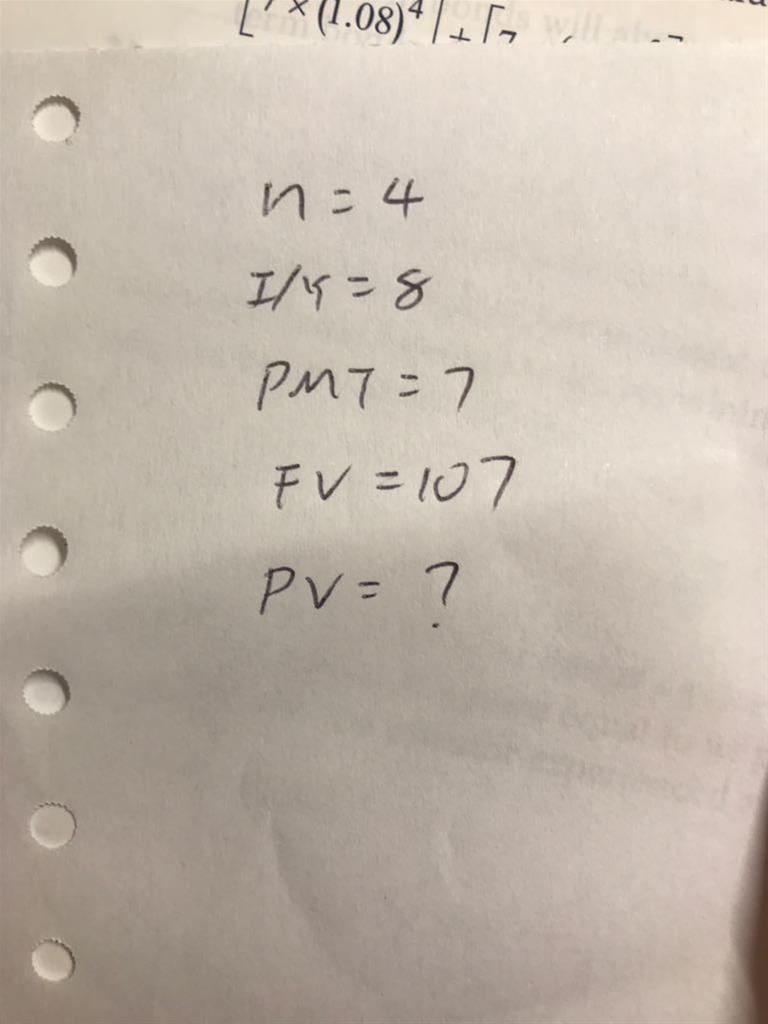 [7 × (1.08)⁴] + [7
n = 4
I/Y = 8
PMT = 7
FV = 107
PV = ?